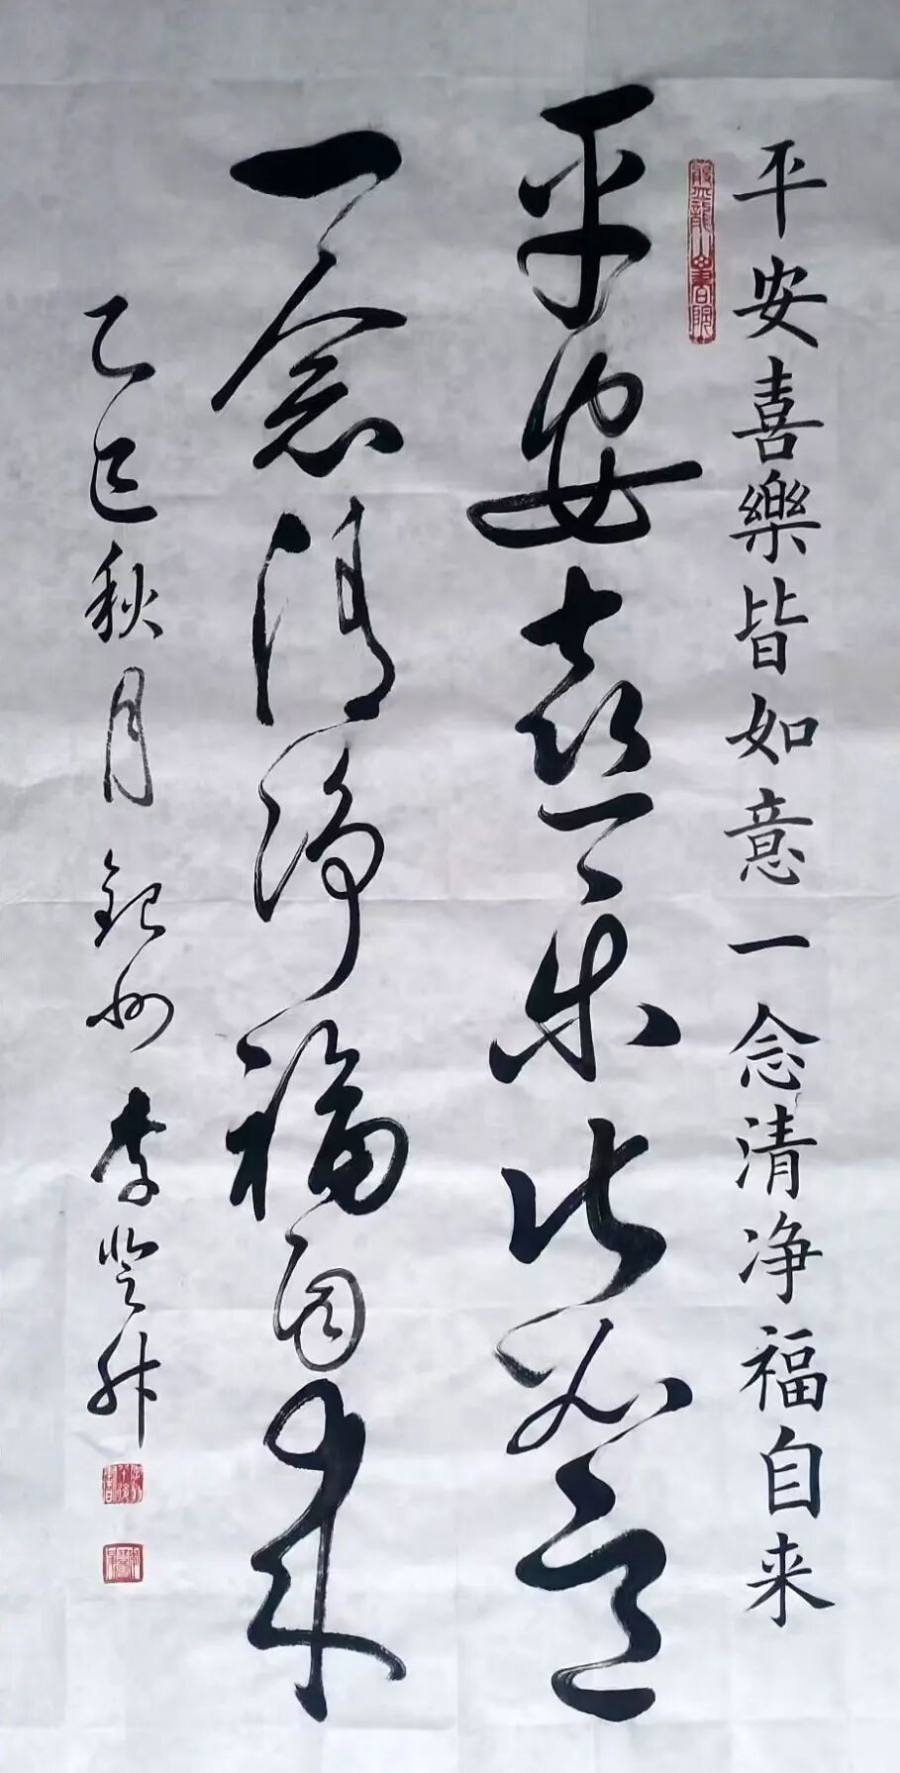 平安喜樂皆如意一念清净福自来
平安喜樂皆如意
一念清净福自来
乙巳秋月 钦州 李登科